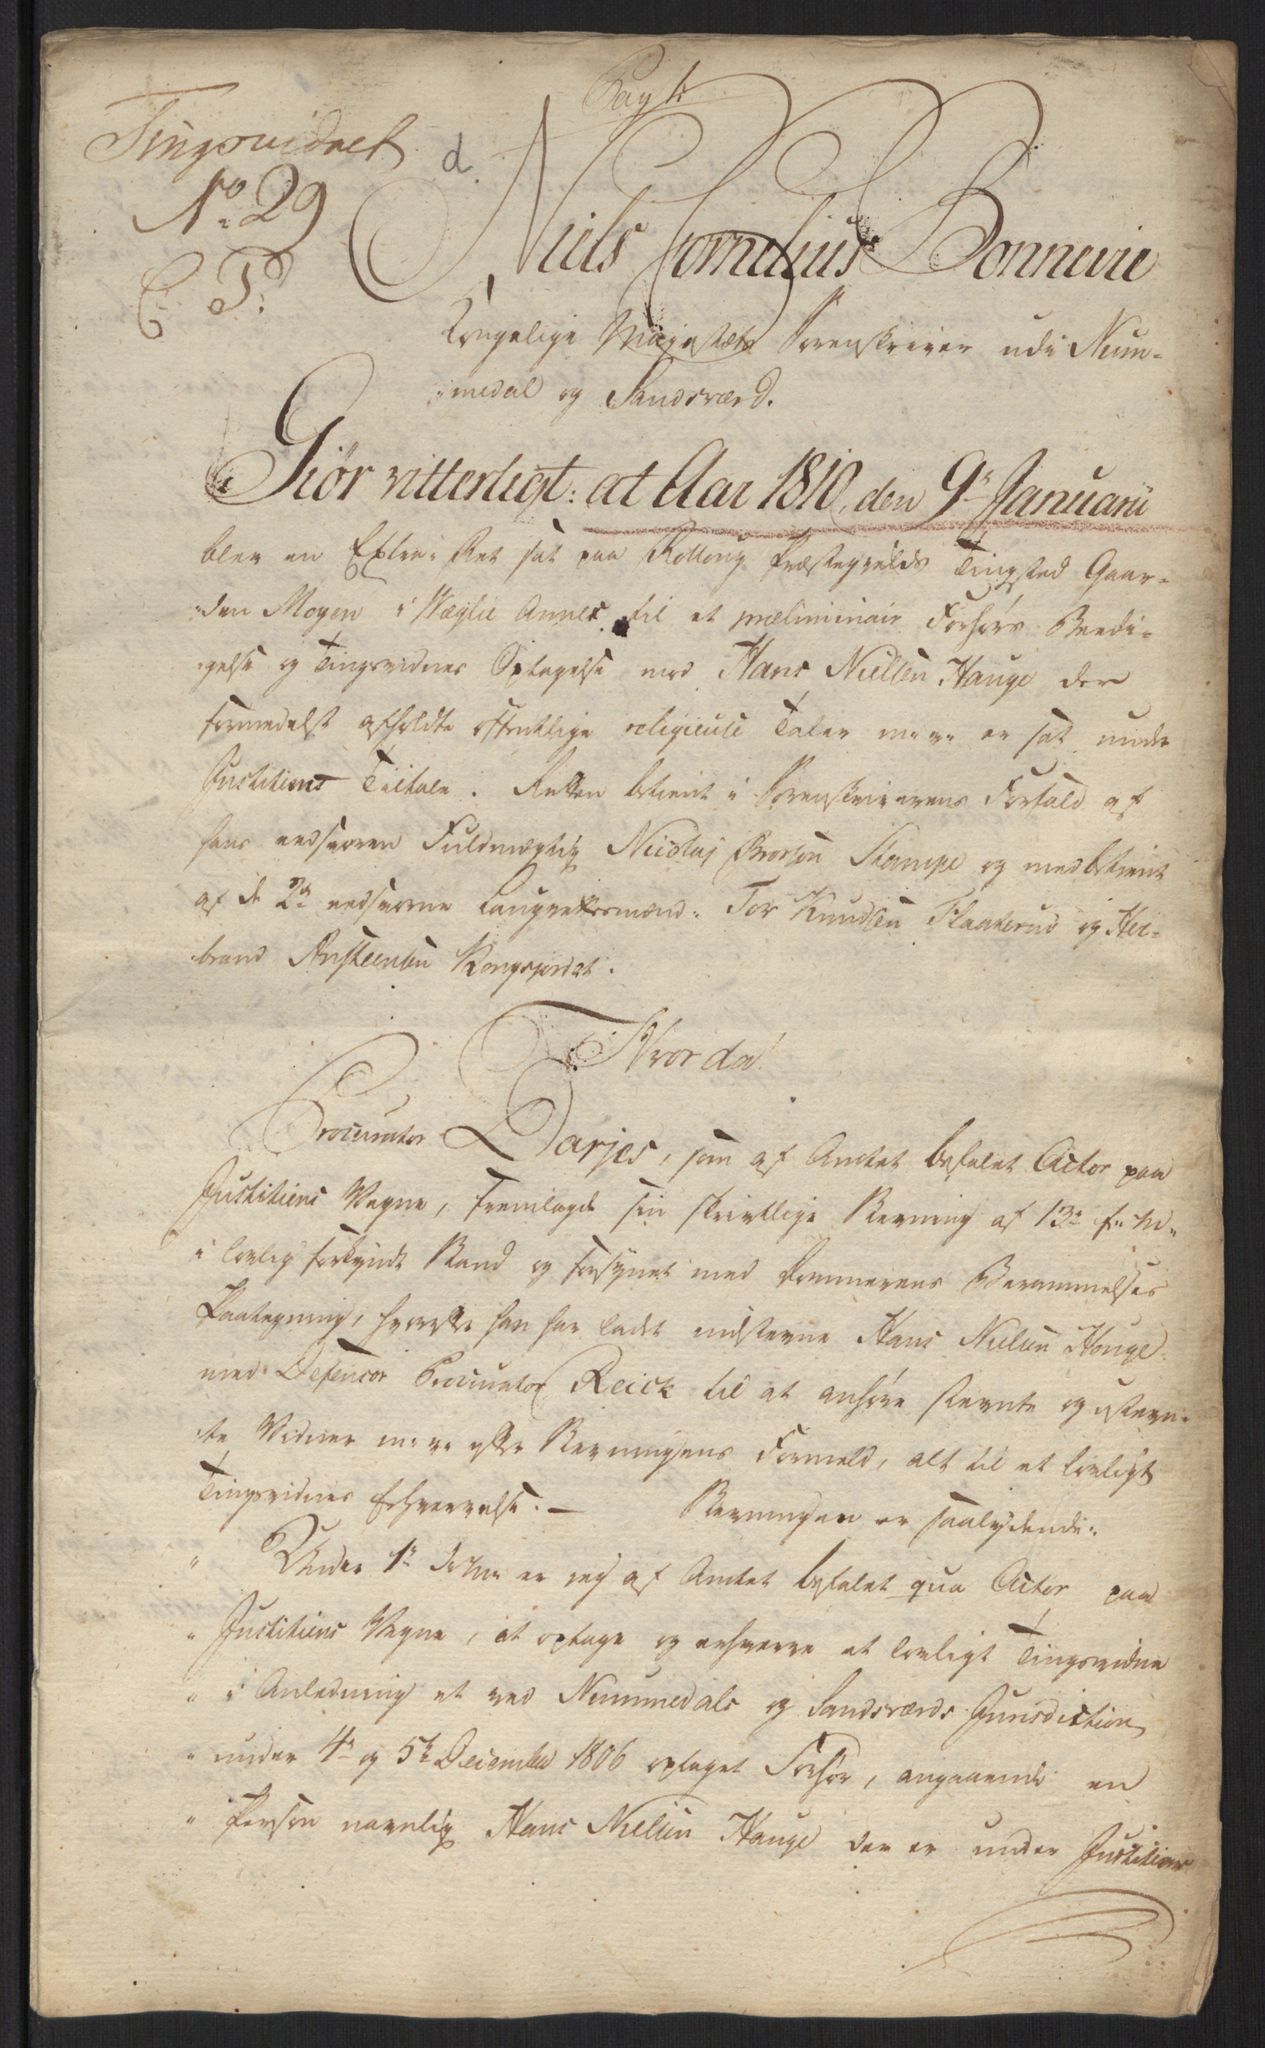 Tingsvidnet
No. 29
C. T.
d.
Niels Cornelius Bonnevie
Kongelige Majestæts Sorenskriver udi Num-
medal og Sandsværd.
Giør vitterligt: at Aar 1810, den 9de Januarii
blev en Extra Ret sat paa Rolloug Præstegields Tingsted Gaar-
den Moyen i Wæglie Annex til et præliminair Forhørs Beedi-
gelse og Tingsvidnes Optagelse mod Hans Nielsen Hauge der
formedelst afholdte offentlige religieuse Taler m: v: er sat under
Justitiens Tiltale. Retten betient i Sorenskriverens Forfald af
hans eedsvoren Fuldmægtig Nicolaj Brorson Stampe og medbetient
af de 2de eedsvorne Laugrettesmænd: Tor Knudsen Flaaterud og Her-
brand Ansteensen Kongsjordet.
Hvorda!
Procurator Darjes, som af Amtet befalet Actor paa
Justitiens Vegne, fremlagde sin skrivtlige Stevning af 13de f: M:
i lovlig forkyndt Stand og forsynet med Dommerens Berammelses
Paategning, hvorefter han har ladet indstevne Hans Nielsen Houge
med Defensor Procurator Reick til at anhøre stevnte og ustevn-
te Vidner m: v: efter Stevningens Formeld, alt til et lovligt
Tingsvidnes Erhvervelse. — Stevningen er saalydende:
" Under 1te er jeg af Amtet befalet qua Actor paa
" Justitiens Vegne, at optage og erhverve et lovligt Tingsvidne
" i Anledning et ved Nummedals og Sandsværds Jurisdiction
" under 4de og 5te December 1806 optaget Forhør, angaaende en
" Person navnlig Hans Nielsen Hauge der er under Justitiens